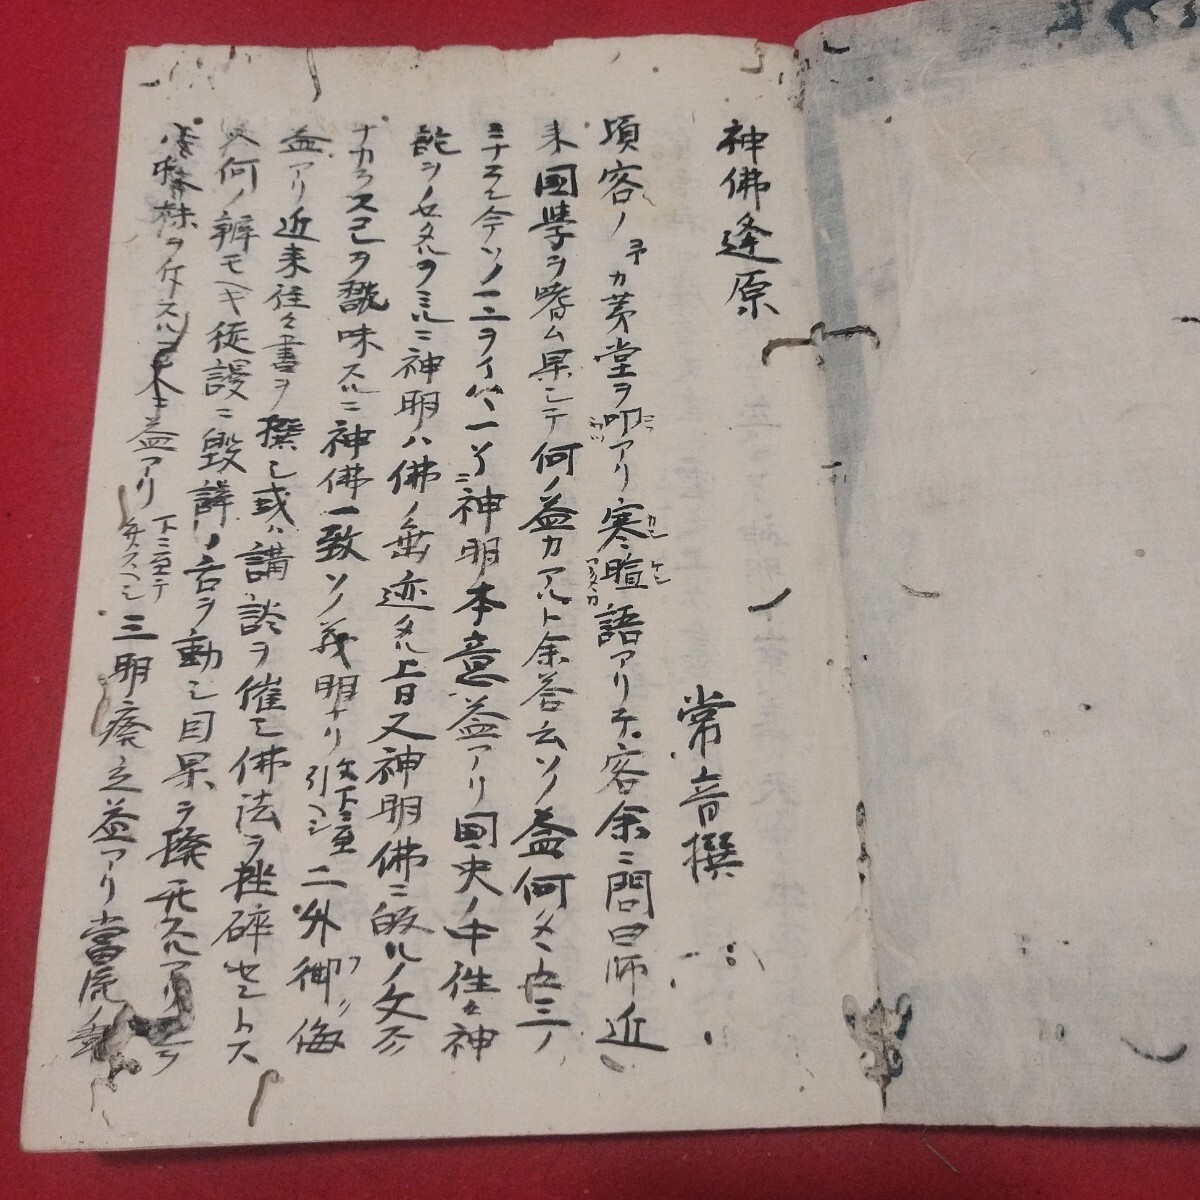 神佛逢原
常音撰
頃客ノ予カ茅堂ヲ叩アリ寒暄語アリテ客余ニ問曰師近
来國学ヲ嗜ム果シテ何ノ益カアルト余答云ソノ益何タヽ也三ノ
ミナラン今ソノ一二ヲイハヽ一ツニ神明本意益アリ國史ノ中往々神
託ヲノセタルヲミルニ神明ハ佛ノ垂迹タル上曰又神明佛ニ皈ルノ文
ナカラス己ヲ翫味スルニ神佛一致ソノ義明ナリ文下ニ至引ヘシ二外御侮
益アリ近来往々書ヲ撰シ或ハ講談ヲ催シ佛法ヲ挫碎セントス
何ノ辨モヘキ徒謾ニ毀謗ノ舌ヲ動シ因果ヲ撥无スルアリ
ヲ益アリ下ニ至テ弁スヘシ三明廃立益アリ當流ノ